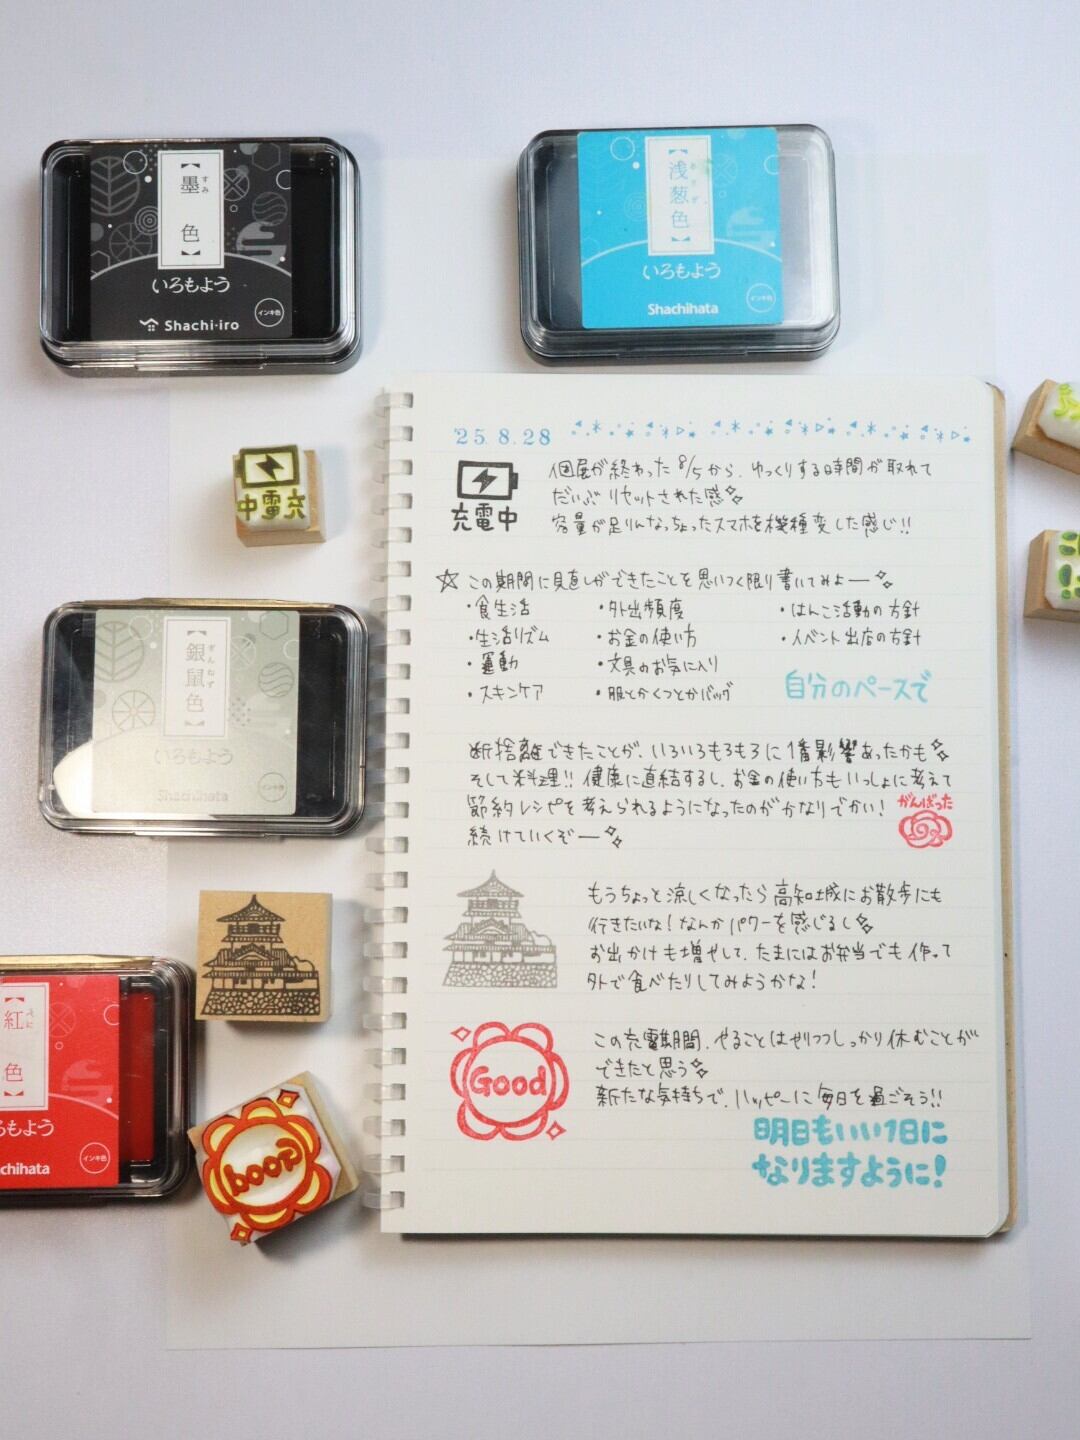 【墨色】
すみ
いろもよう
インキ色
Shachi-iro
【浅葱色】
あさぎ
いろもよう
インキ色
Shachihata
充電中
【銀鼠色】
ぎんねず
いろもよう
インキ色
Shachihata
【紅色】
べに
ろもよう
インキ色
chihata
Good
'25.8.28
充電中
個展が終わった8/5から、ゆっくりする時間が取れて
だいぶリセットされた感
容量が足りんなっちょったスマホを機種変した感じ!!
☆この期間に見直しができたことを思いつく限り書いてみよー
・食生活
・生活リズム
・運動
・スキンケア
・外出頻度
・お金の使い方
・文具のお気に入り
・服とかくつとかバッグ
・はんこ活動の方針
・イベント出店の方針
自分のペースで
断捨離できたことが、いろいろもろもろに1番影響あったかも
そして料理!!健康に直結するし、お金の使い方もいっしょに考えて
節約レシピを考えられるようになったのがかなりでかい!
続けていくぞー
がんばった
もうちょっと涼しくなったら高知城にお散歩にも
行きたいな!なんかパワーを感じるし
お出かけも増やして、たまにはお弁当でも作って
外で食べたりしてみようかな!
Good
この充電期間、やることはやりつつしっかり休むことが
できたと思う
新たな気持ちで、ハッピーに毎日を過ごそう!!
明日もいい1日に
なりますように!